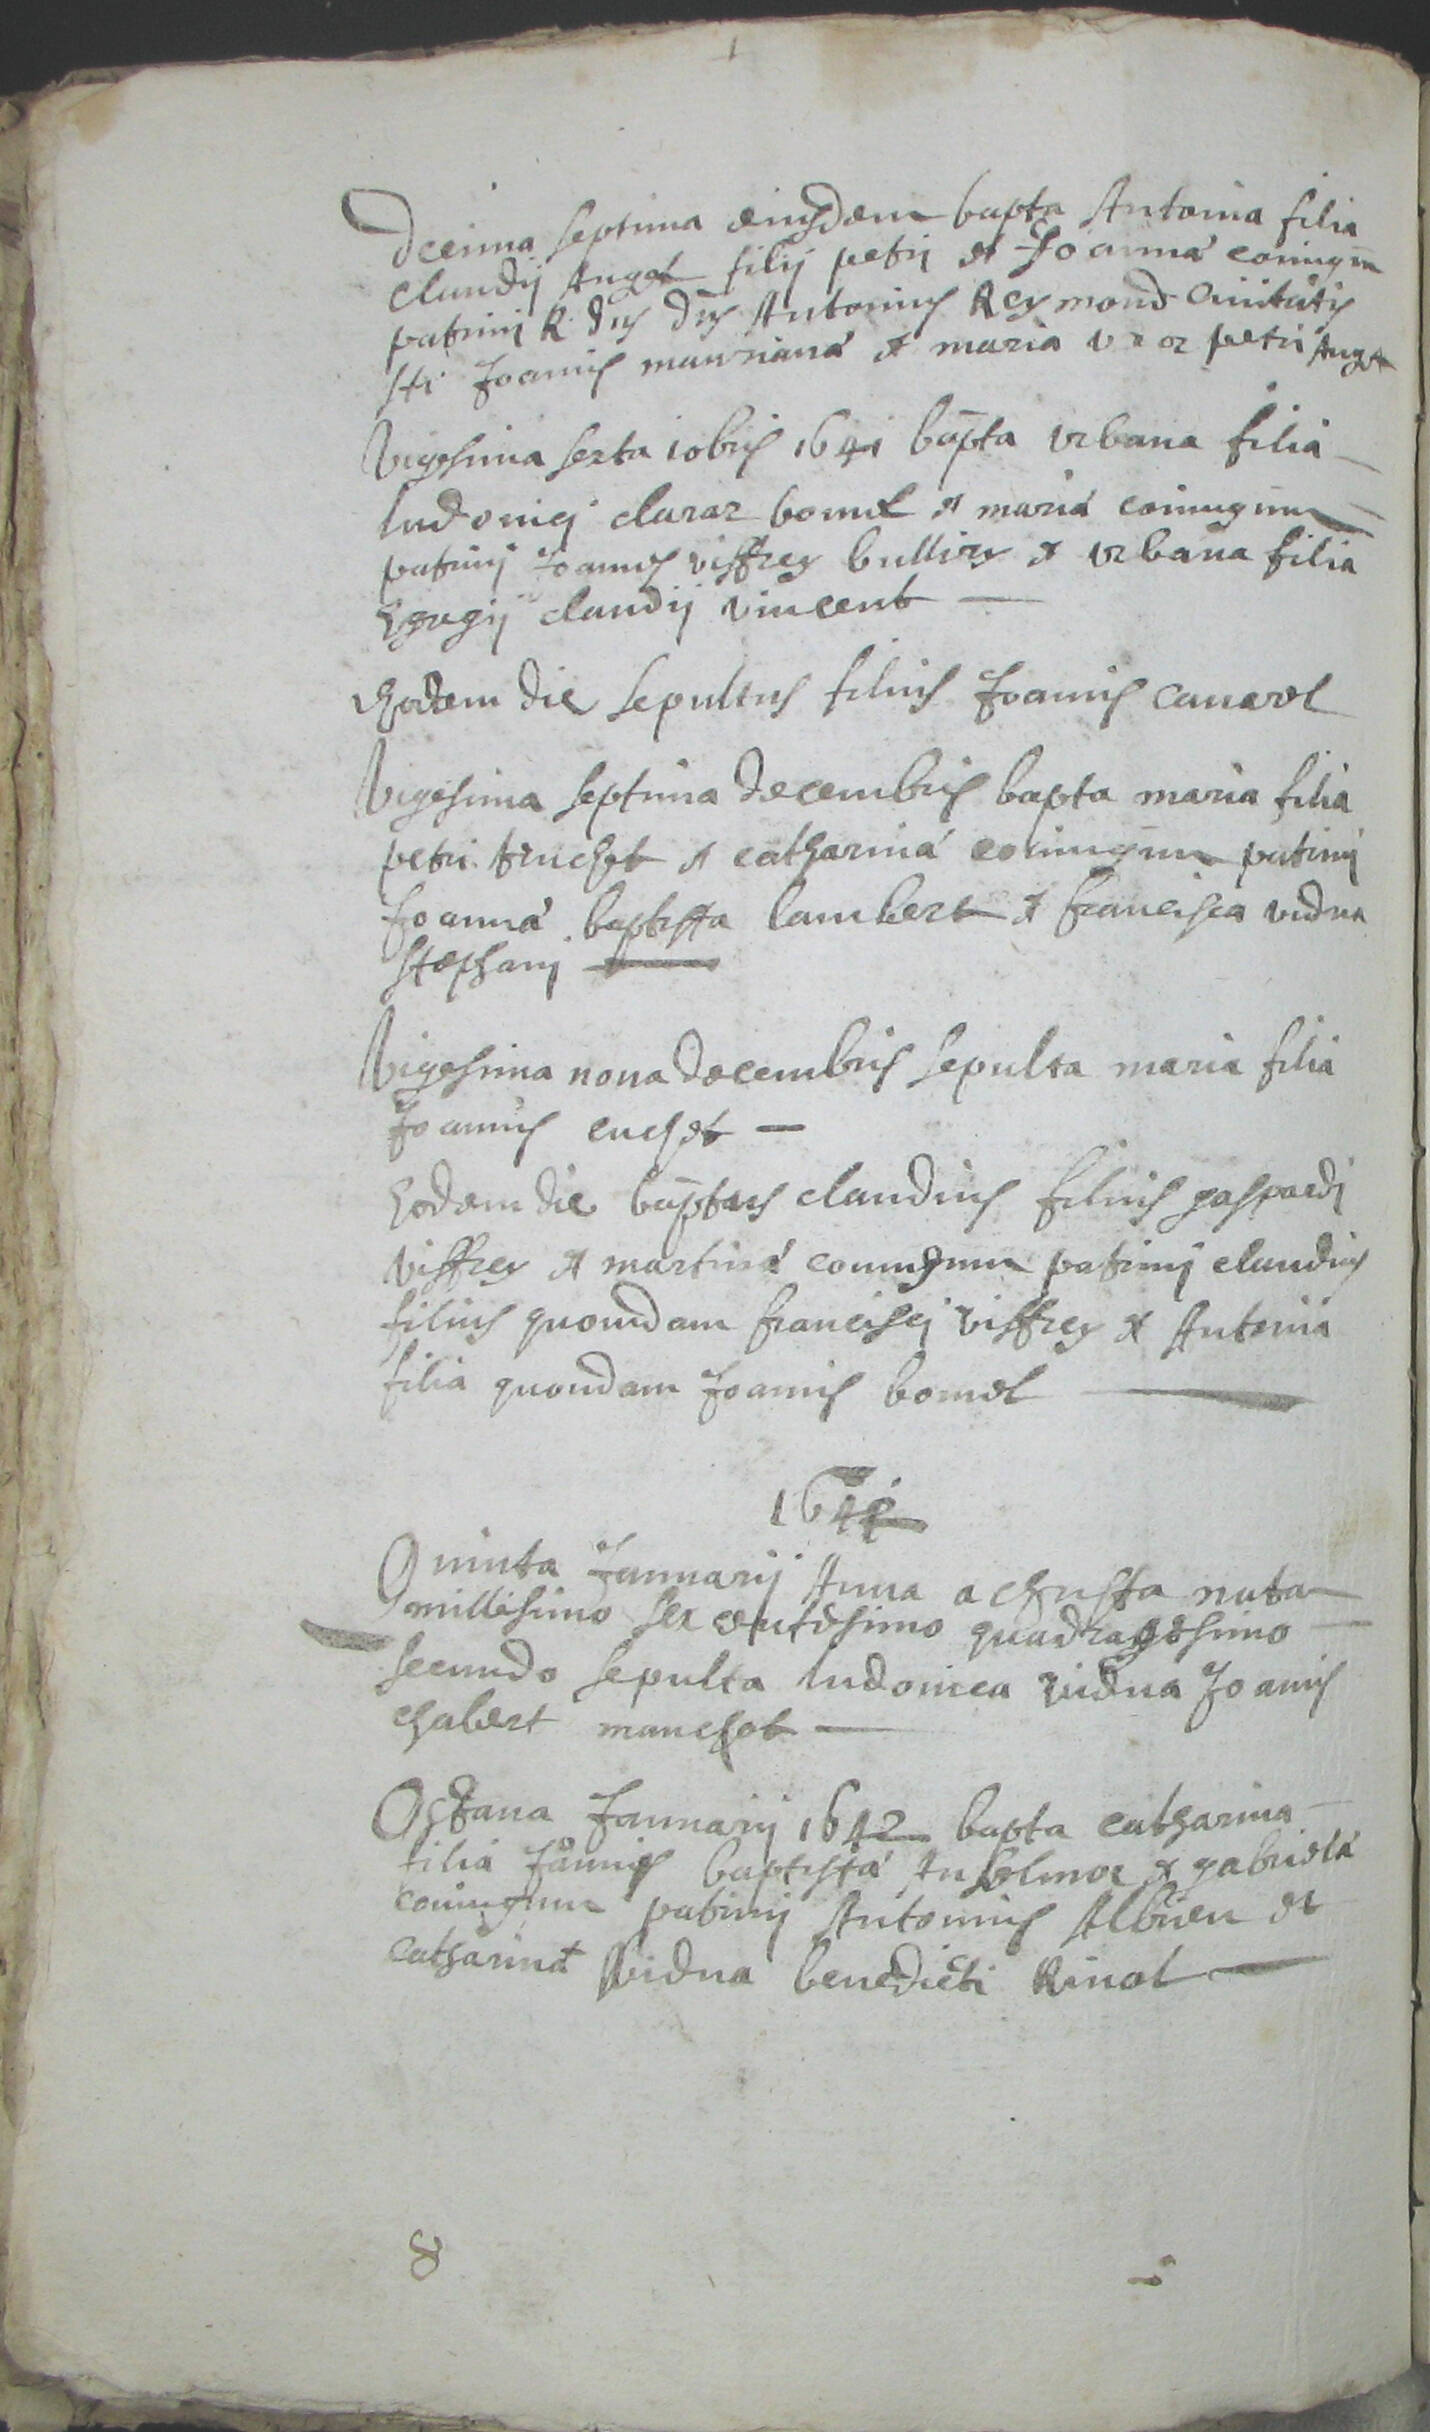 Dcima septima eiusdem bapta Antonia filia
claudij Anget filij petri et Joanna coniugū
patrini R. dns dns Antonius Reymond Ciuitatis
sti Joannis mauriana et maria vxor petri Anget
Vigesima sexta xobris 1641 bapta vrbana filia
ludouici claraz bomel et maria coniugum
patrini Joannes viffrey bullioz et vrbana filia
Egregij claudij vincent
Eodem die sepultus filius Joannis canarel
Vigesima septima decembris bapta maria filia
petri truchet et catharina coniugum patrini
Joanna baptista lambert et francisca vidua
stephani
Vigesima nona decembris sepulta maria filia
Joannis cuchet
Eodem die baptus claudius filius gaspardi
viffrey et martina coniugum patrini claudius
filius quondam francisci viffrey et Antonia
filia quondam Joannis bomel
1642
Quinta Januarij Anna a christa nata
millesimo sex centesimo quadragesimo
secundo sepulta ludouica vidua Joannis
chabert manchot
Octaua Januarij 1642 bapta catharina
filia Joannis baptista Anselmoz et gabriela
coniugum patrini Antonius Albrieu et
catharina vidua benedicti Rinol
8